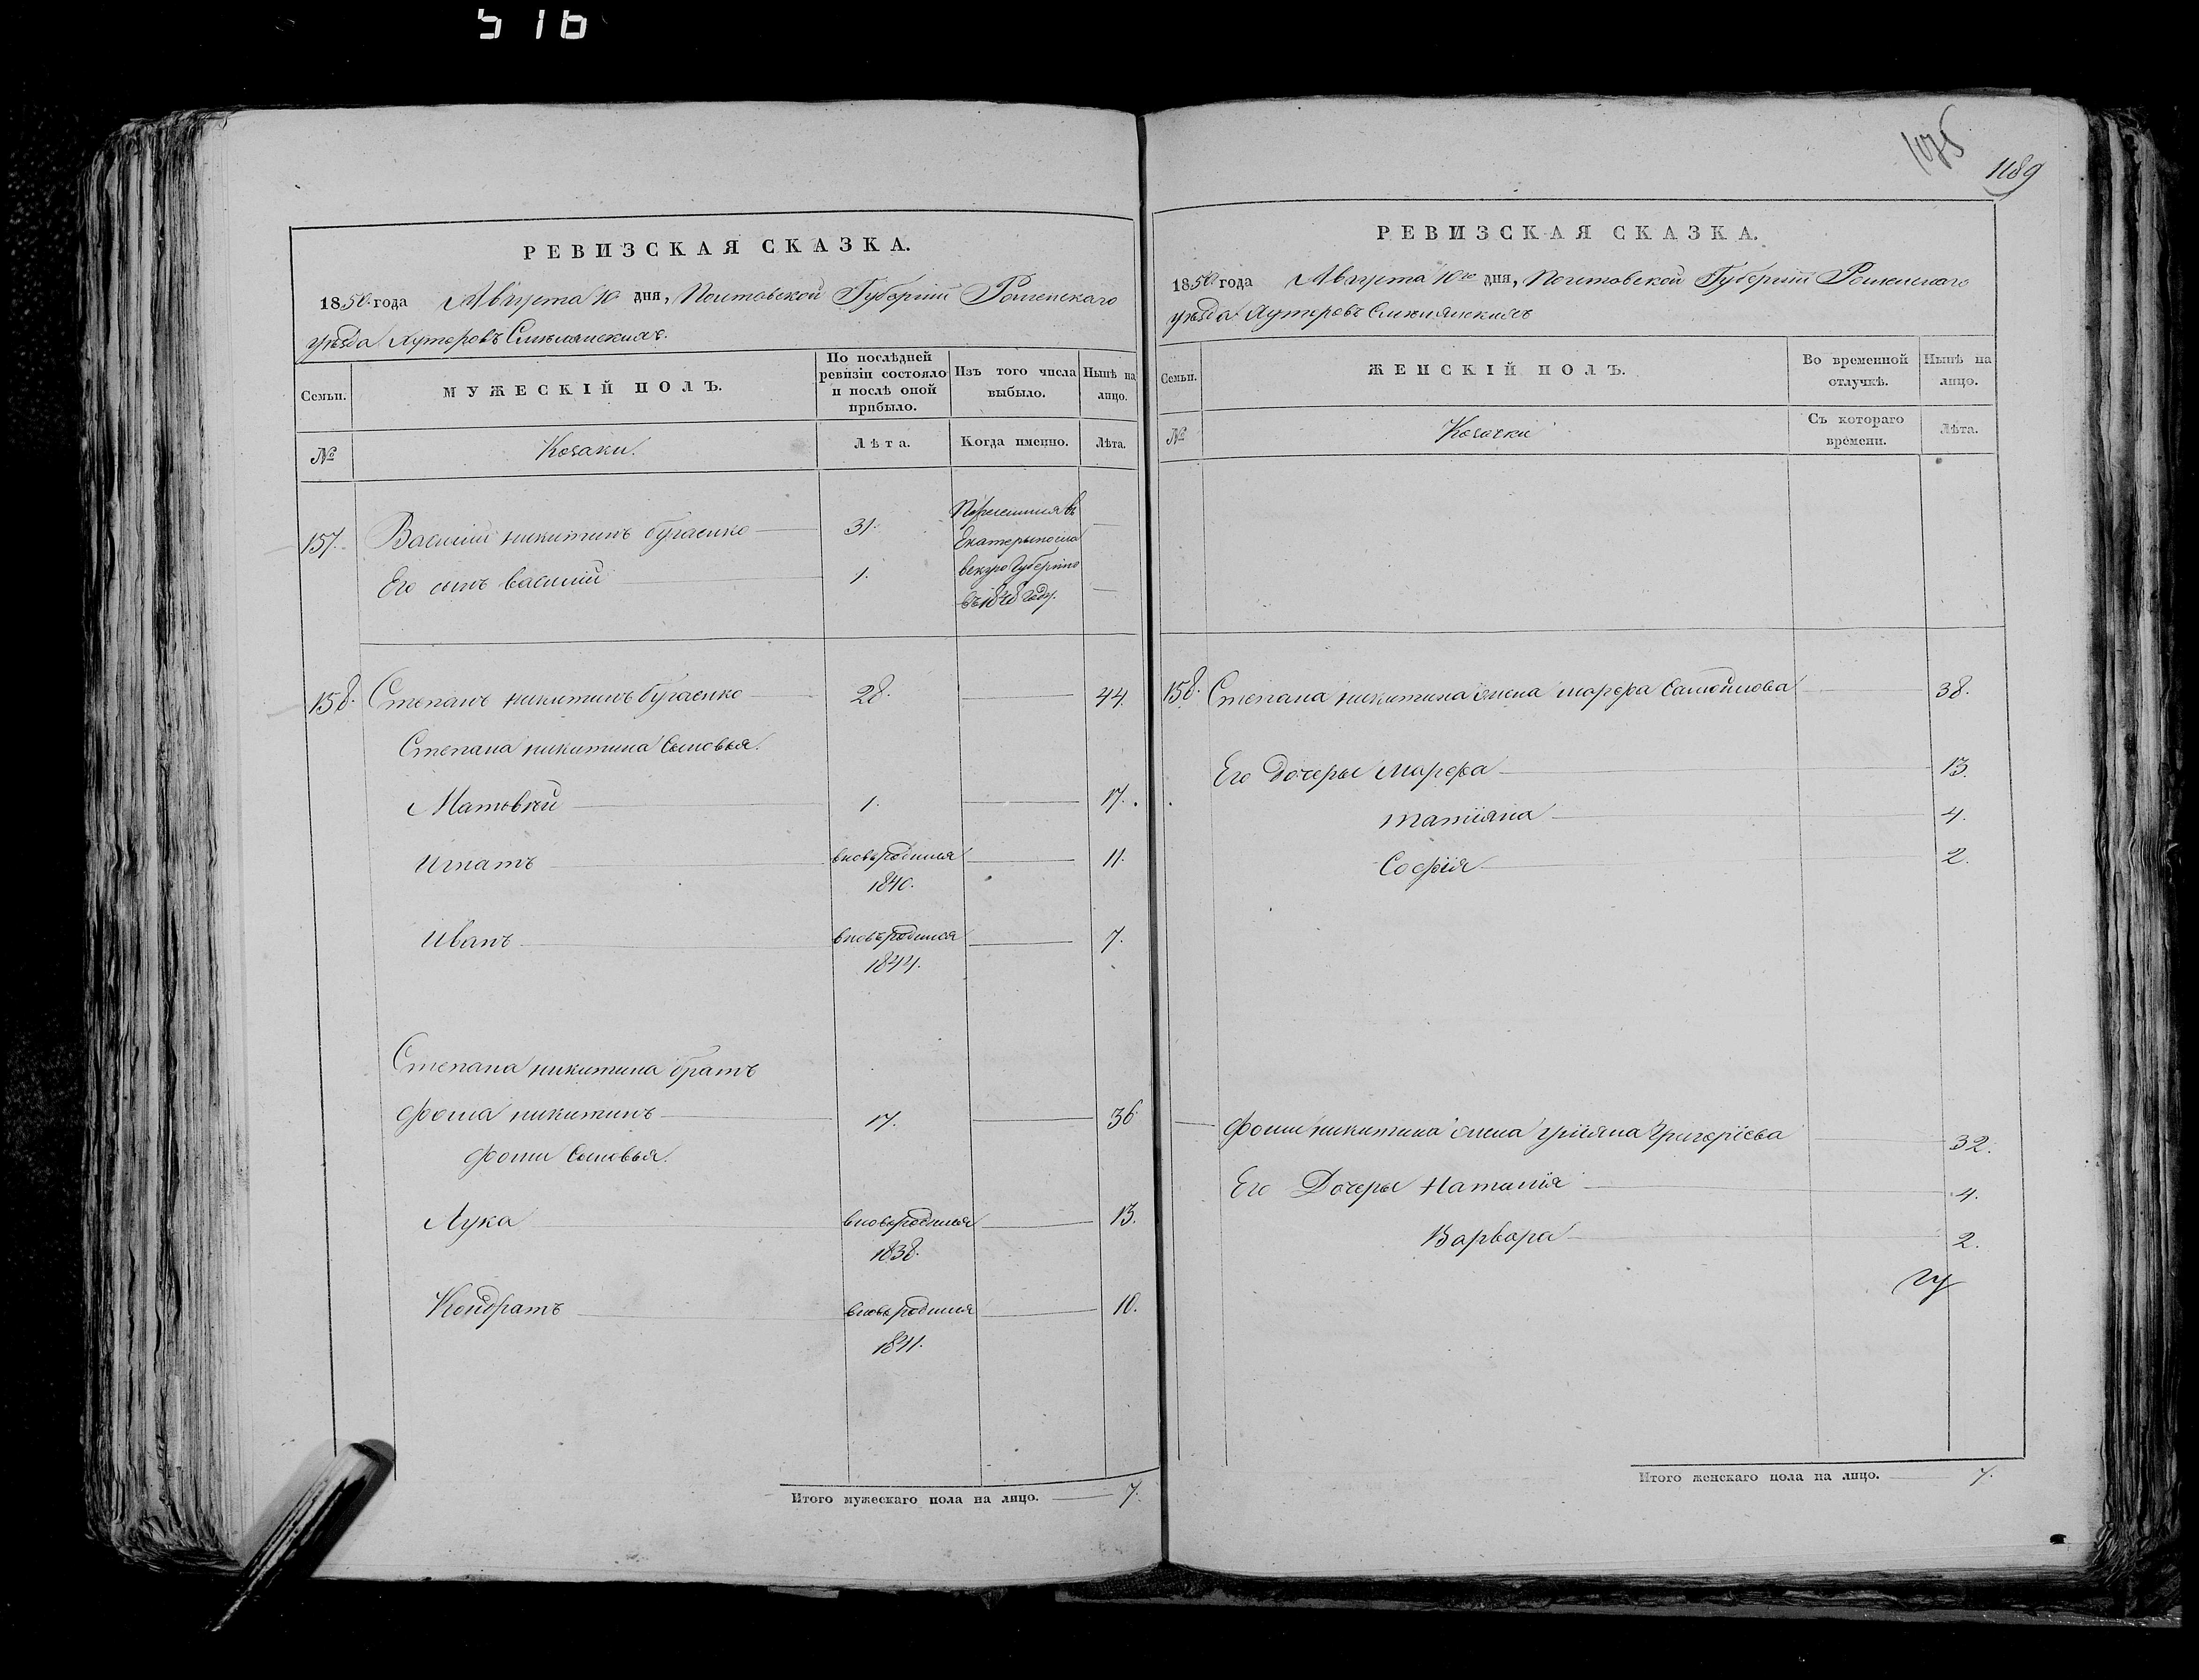 516
РЕВИЗСКАЯ СКАЗКА.
1850 года Августа 10 дня, Полтавской Губерніи Роменскаго
уѣзда Хуторовъ Смѣлянскихъ.
Семьи.
МУЖЕСКІЙ ПОЛЪ.
По послѣдней ревизіи состояло и послѣ оной прибыло.
Изъ того числа выбыло.
Нынѣ на лицо.
№
Козаки.
Лѣта.
Когда именно.
Лѣта.
157. Василій никитинъ бугаенко 31. Переселился въ
Екатериносла
Его сынъ василій 1. вскую Губернію
въ 1848 году.
158. Степанъ никитинъ бугаенко 28. 44.
Степана никитина сыновья.
Матвѣй 1. 17.
Игнатъ вновьродился 11.
1840.
Иванъ вновьродился 7.
1844.
Степана никитина братъ
Фома никитинъ 17. 36
Фомы сыновья.
Лука вновьродился 13.
1838.
Кондратъ вновьродился 10.
1841.
Итого мужескаго пола на лицо. 7.
1075
1189
РЕВИЗСКАЯ СКАЗКА.
1850 года Августа 10го дня, Полтавской Губерніи Роменскаго
уѣзда Хуторовъ Смѣлянскихъ
Семьи.
ЖЕНСКІЙ ПОЛЪ.
Во временной отлучкѣ.
Нынѣ на лицо.
№
Козачки
Съ котораго времени.
Лѣта.
158. Степана никитина жена марфа Самойлова 38.
Его дочеры Марфа 13.
татіяна 4.
Софія 2.
Фомы никитина жена уліяна Григоріева 32.
Его Дочеры Наталія 4.
Варвара 2.
Итого женскаго пола на лицо. 7.